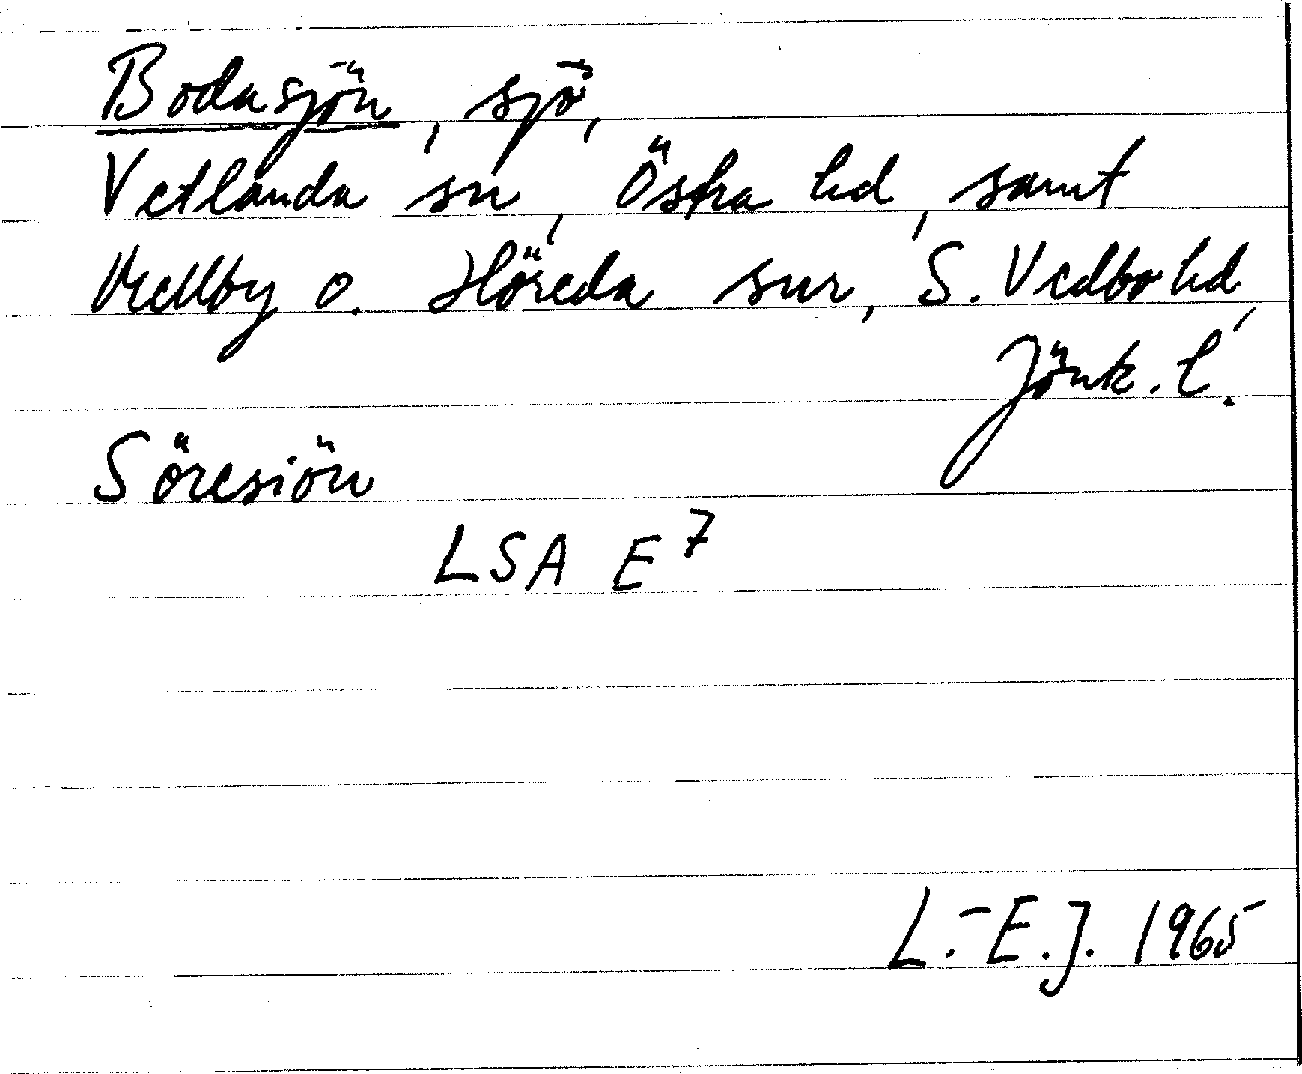 Bodasjön, sjö,
Vetlanda sn, Östra hd, samt
Mellby o. Höreda snr, S. Vedbo hd,
Jönk. l.
Söresiön
LSA E7
L.-E.J. 1965